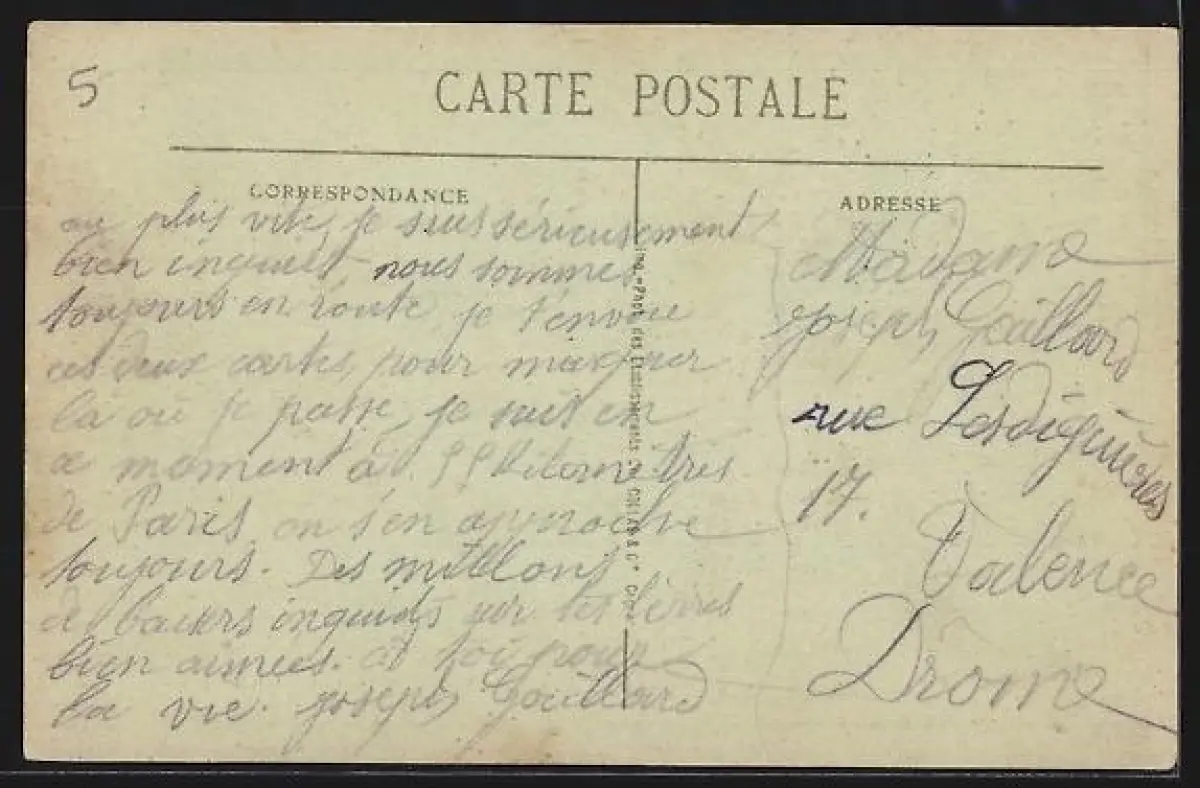 5
CARTE POSTALE
CORRESPONDANCE
au plus vite, je suis sérieusement
bien inquiet, nous sommes
toujours en route je t'envoie
ces deux cartes, pour marquer
là où je passe, je suit en
ce moment à 55 Kilomètres
de Paris on s'en approche
toujours. Des millions
de baisers inquiets sur tes lèvres
bien aimées. à toi pour
la vie. Joseph Gaillard
ADRESSE
Madame
Joseph Gaillard
rue Lesdiguières
17.
Valence
Drôme